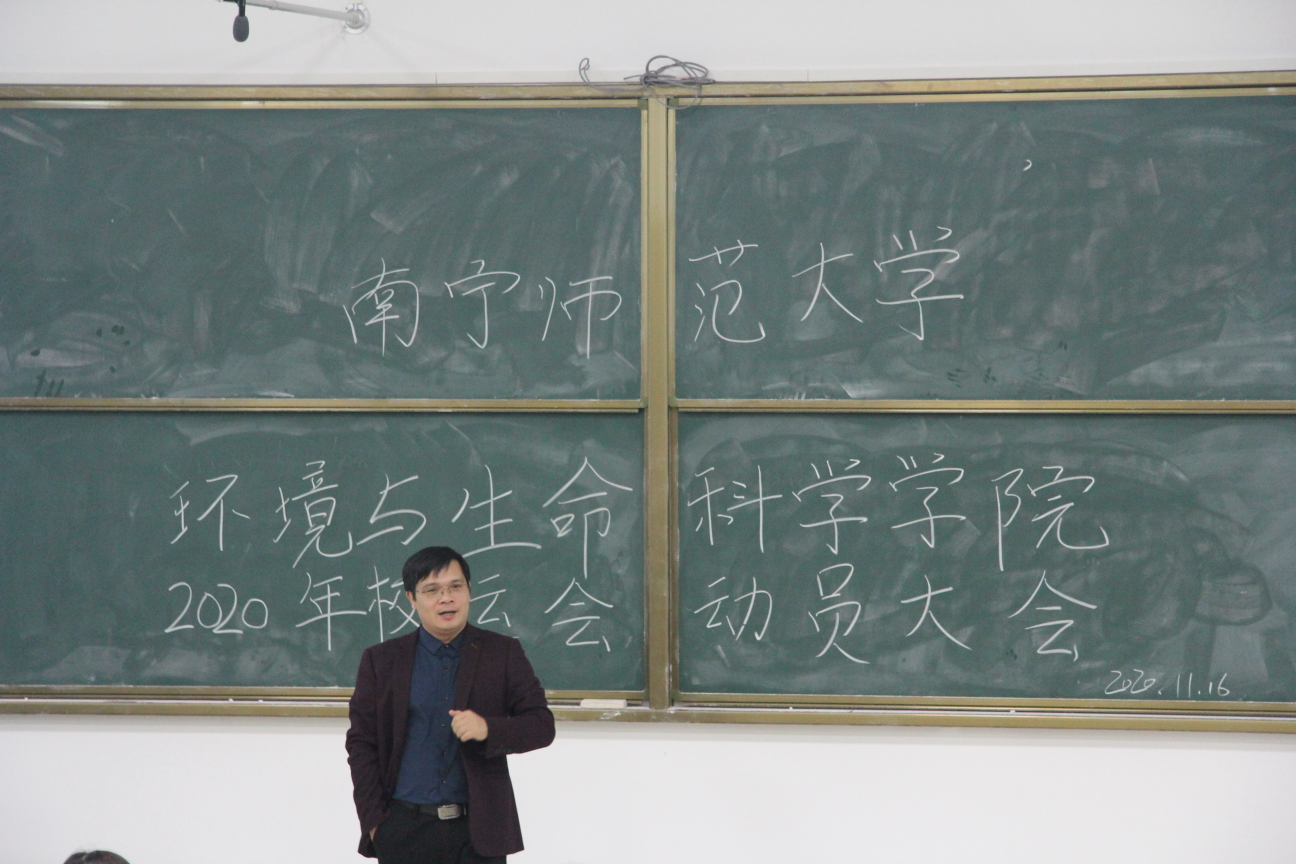 南宁师范大学
环境与生命科学学院
2020年校运会动员大会
2020.11.16